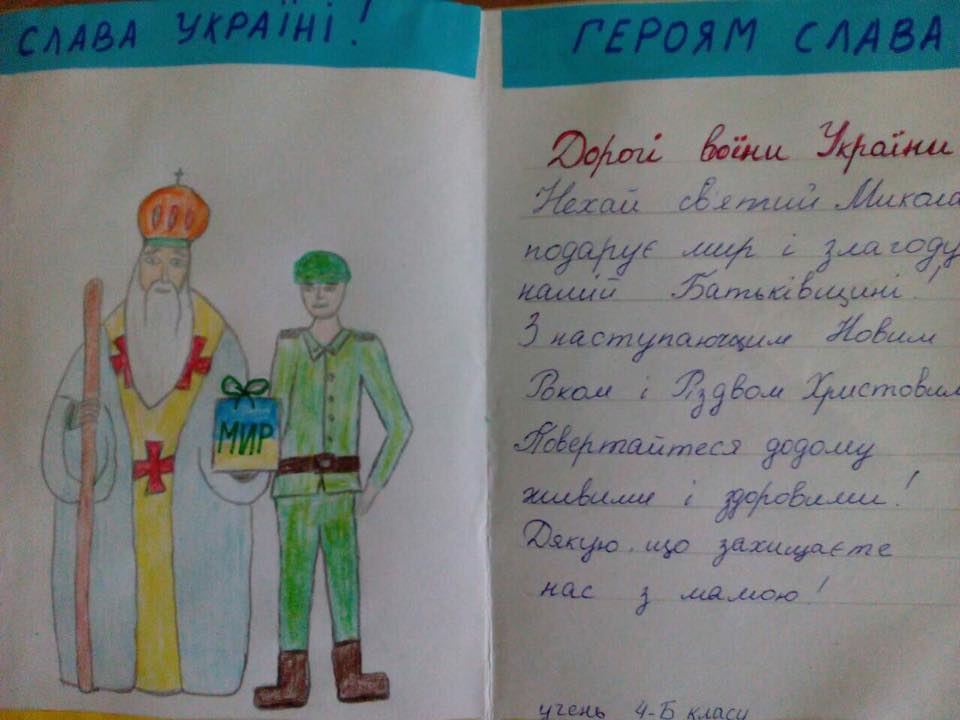 СЛАВА УКРАЇНІ!
МИР
ГЕРОЯМ СЛАВА
Дорогі воїни України
Нехай святий Микола
подарує мир і злагоду
нашій Батьківщині!
З наступаючим Новим
Роком і Різдвом Христовим
Повертайтеся додому
живими і здоровими!
Дякую, що захищаєте
нас з мамою!
учень 4-Б класу